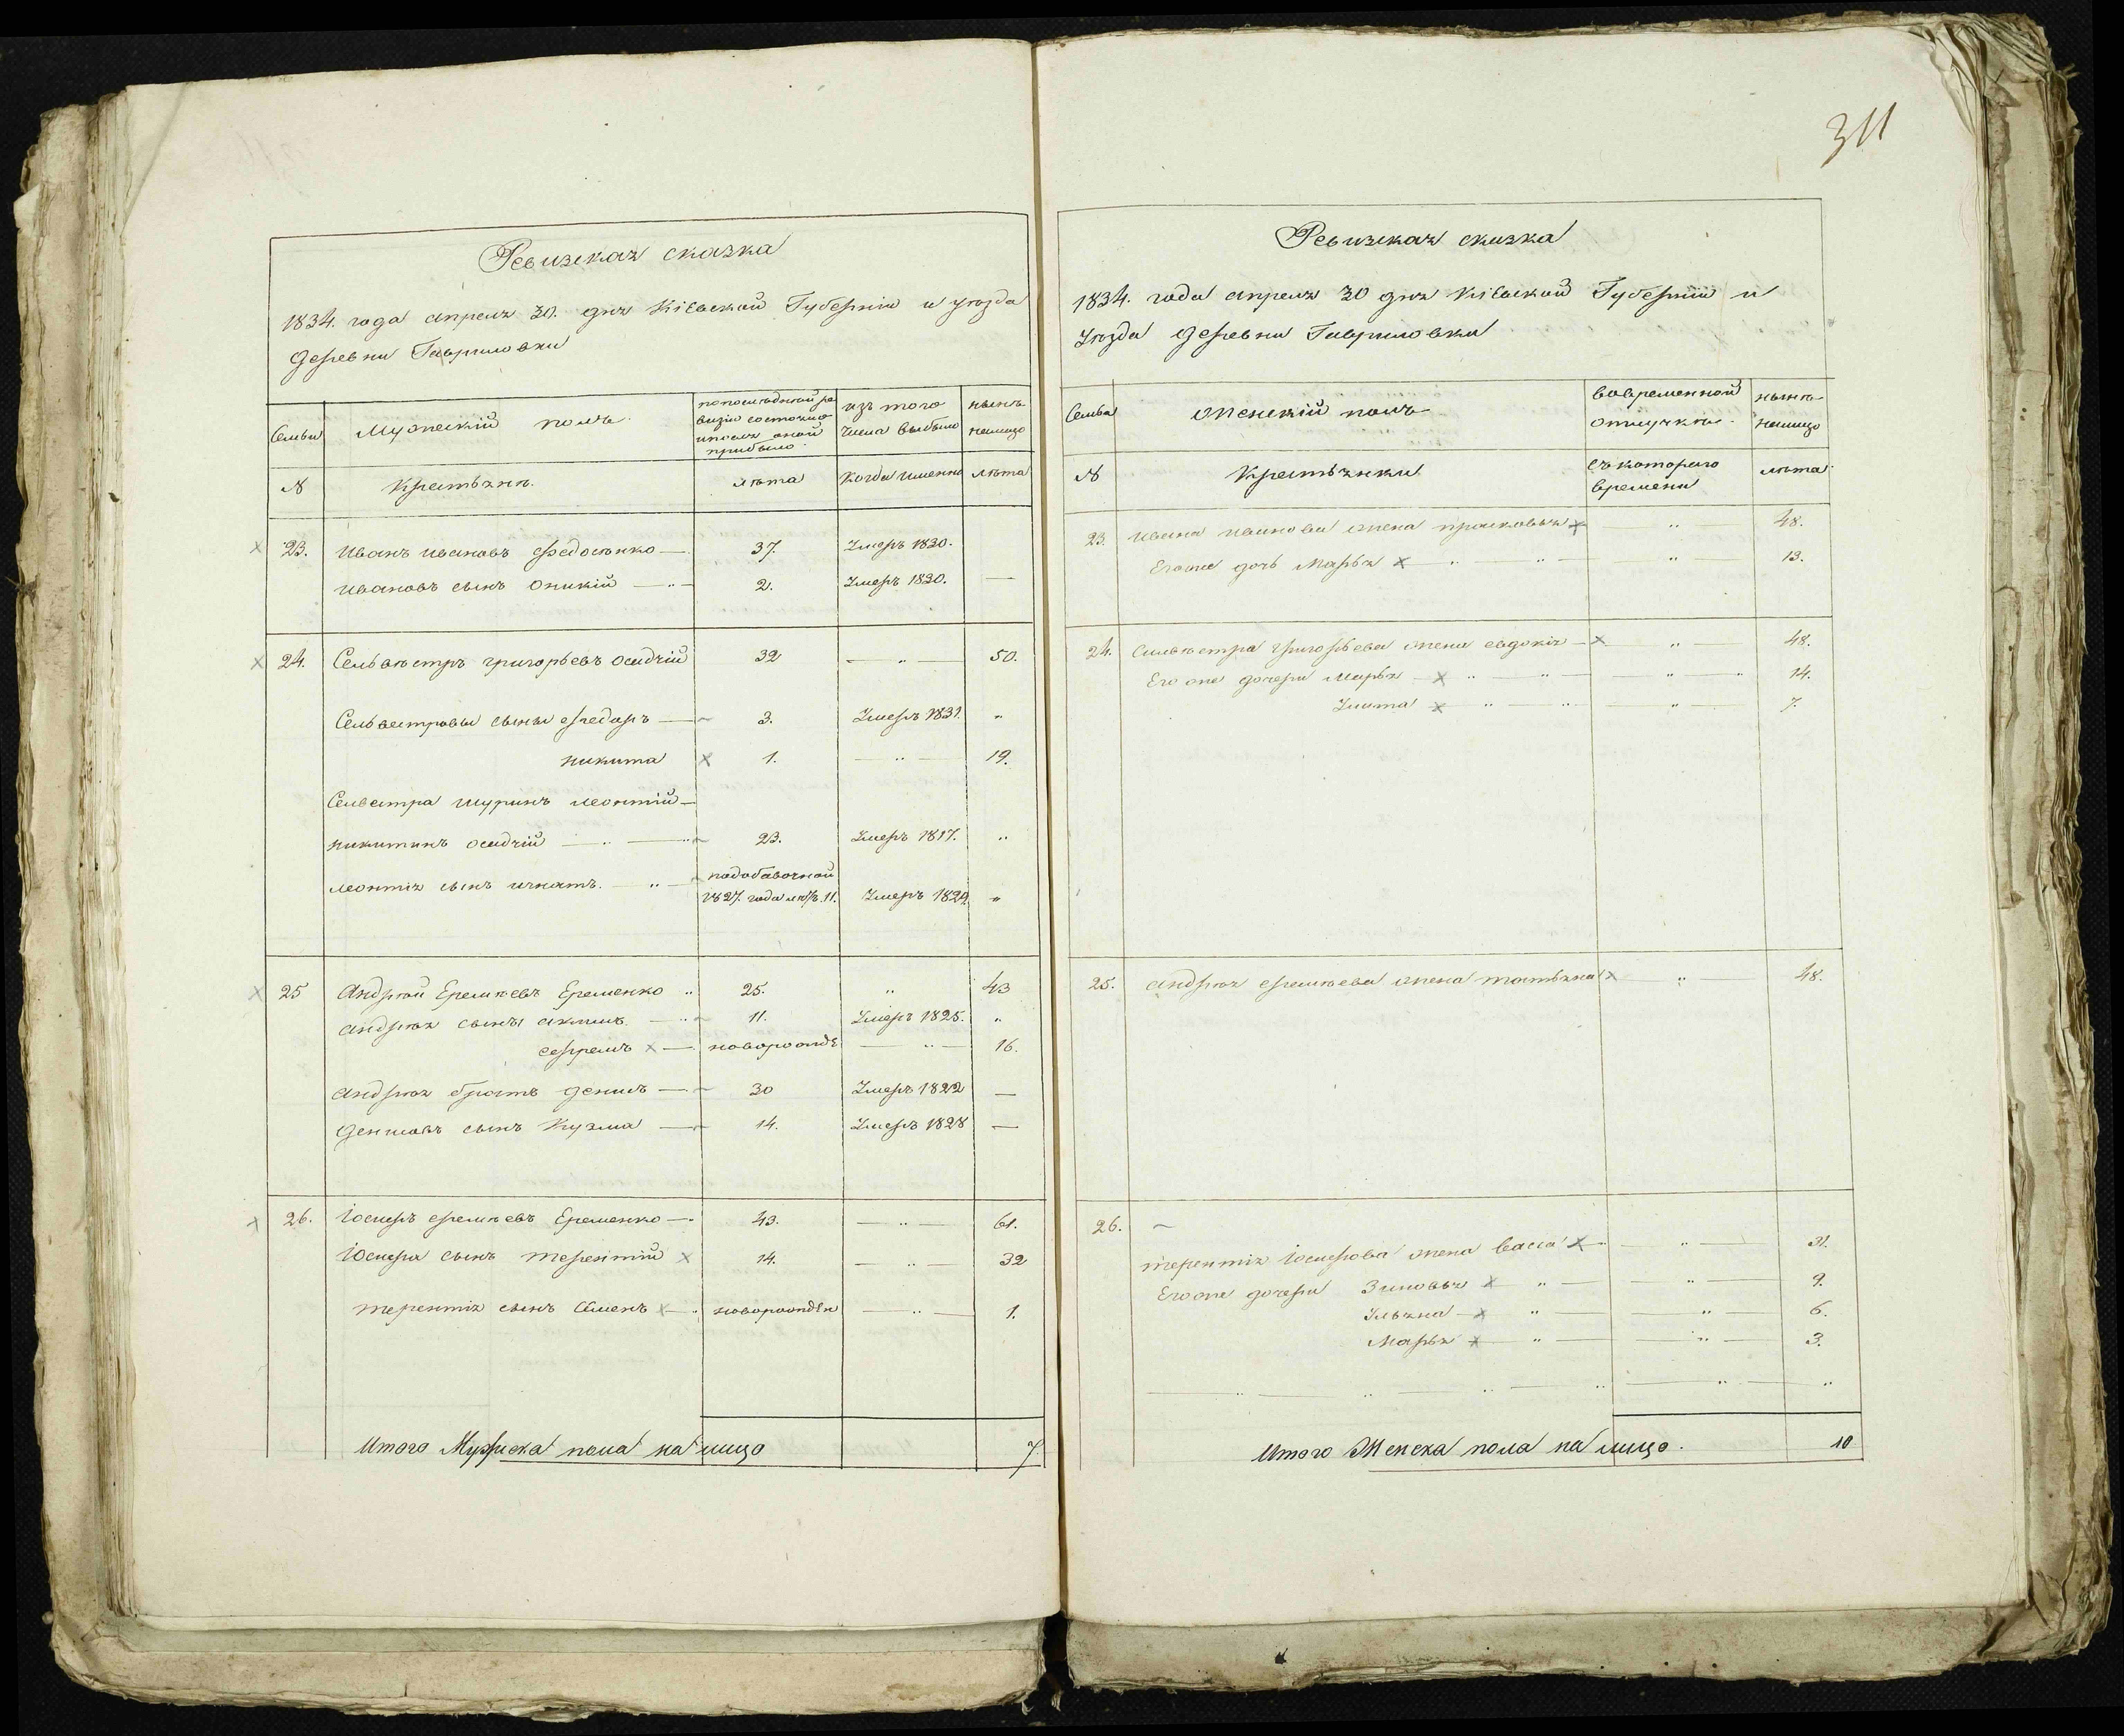 Ревизская сказка
1834. года апреля 30. дня Кіевской Губерніи и уѣзда
деревни Гавриловки
Семьи
Мужескій полъ.
по последней ре
визіи состояло
и послѣ оной
прибыло
изъ того
числа выбыло
нынѣ
налицо
№
Крестьяне.
лѣта
Когда именно
лѣта
23. Иванъ Ивановъ Федосѣнко — 37. Умеръ 1830.
Ивановъ сынъ Оникій — „ — 2. Умеръ 1830. —
24. Сельвестръ Григорьевъ Осадчій 32 — „ — 50.
Сельвестровы сыны Федоръ — 3. Умеръ 1831. „
Никита 1. — „ — 19.
Селвестра шуринъ Леонтій —
Никитинъ Осадчій — „ — 23. Умеръ 1817. „
Леонтія сынъ Игнатъ. — „ — по добавочной
1827. года 11. Умеръ 1829. „
25 Андрей Еремѣевъ Еременко „ 25. „ 43
Андрѣя сынъ Акимъ — „ 11. Умеръ 1825. „
Ефремъ — новорожде — „ — 16.
Андрѣя братъ Денисъ — 30 Умеръ 1822 —
Денисовъ сынъ Кузма — 14. Умеръ 1828 —
26. Іосифъ Еремѣевъ Еременко — 43. — „ — 61.
Іосифа сынъ Терентій 14. — „ — 32
Терентія сынъ Семенъ — „ новорожден — „ — 1.
Итого Мужеска пола на лицо 7.
311
Ревизская сказка
1834. года апреля 30 дня Кіевской Губерніи и
Уѣзда деревни Гавриловки
Семьи
Женскій полъ
во временной
отлучкѣ.
нынѣ
налицо
№
Крестьянки
съ котораго
времени
лѣта
23. Ивана Иванова жена Прасковья „ — 48.
Его же дочь Марья „ — „ — „ — 13.
24. Сильвестра Григорьева жена Евдокія — „ — 48.
Его же дочери Марья — „ — „ — „ — „ 14.
Улита „ — „ — „ — 7.
25. Андрѣя Еремѣева жена Татьяна „ — 48.
26. ~
Терентія Іосифова жена Васса — „ — 31.
Его же дочери Зиновья „ — „ — 9.
Ульяна — „ — „ — 6.
Марья „ — „ — 3.
— „ — „ — „ — „ — „ — „
Итого Женска пола на лицо. 10